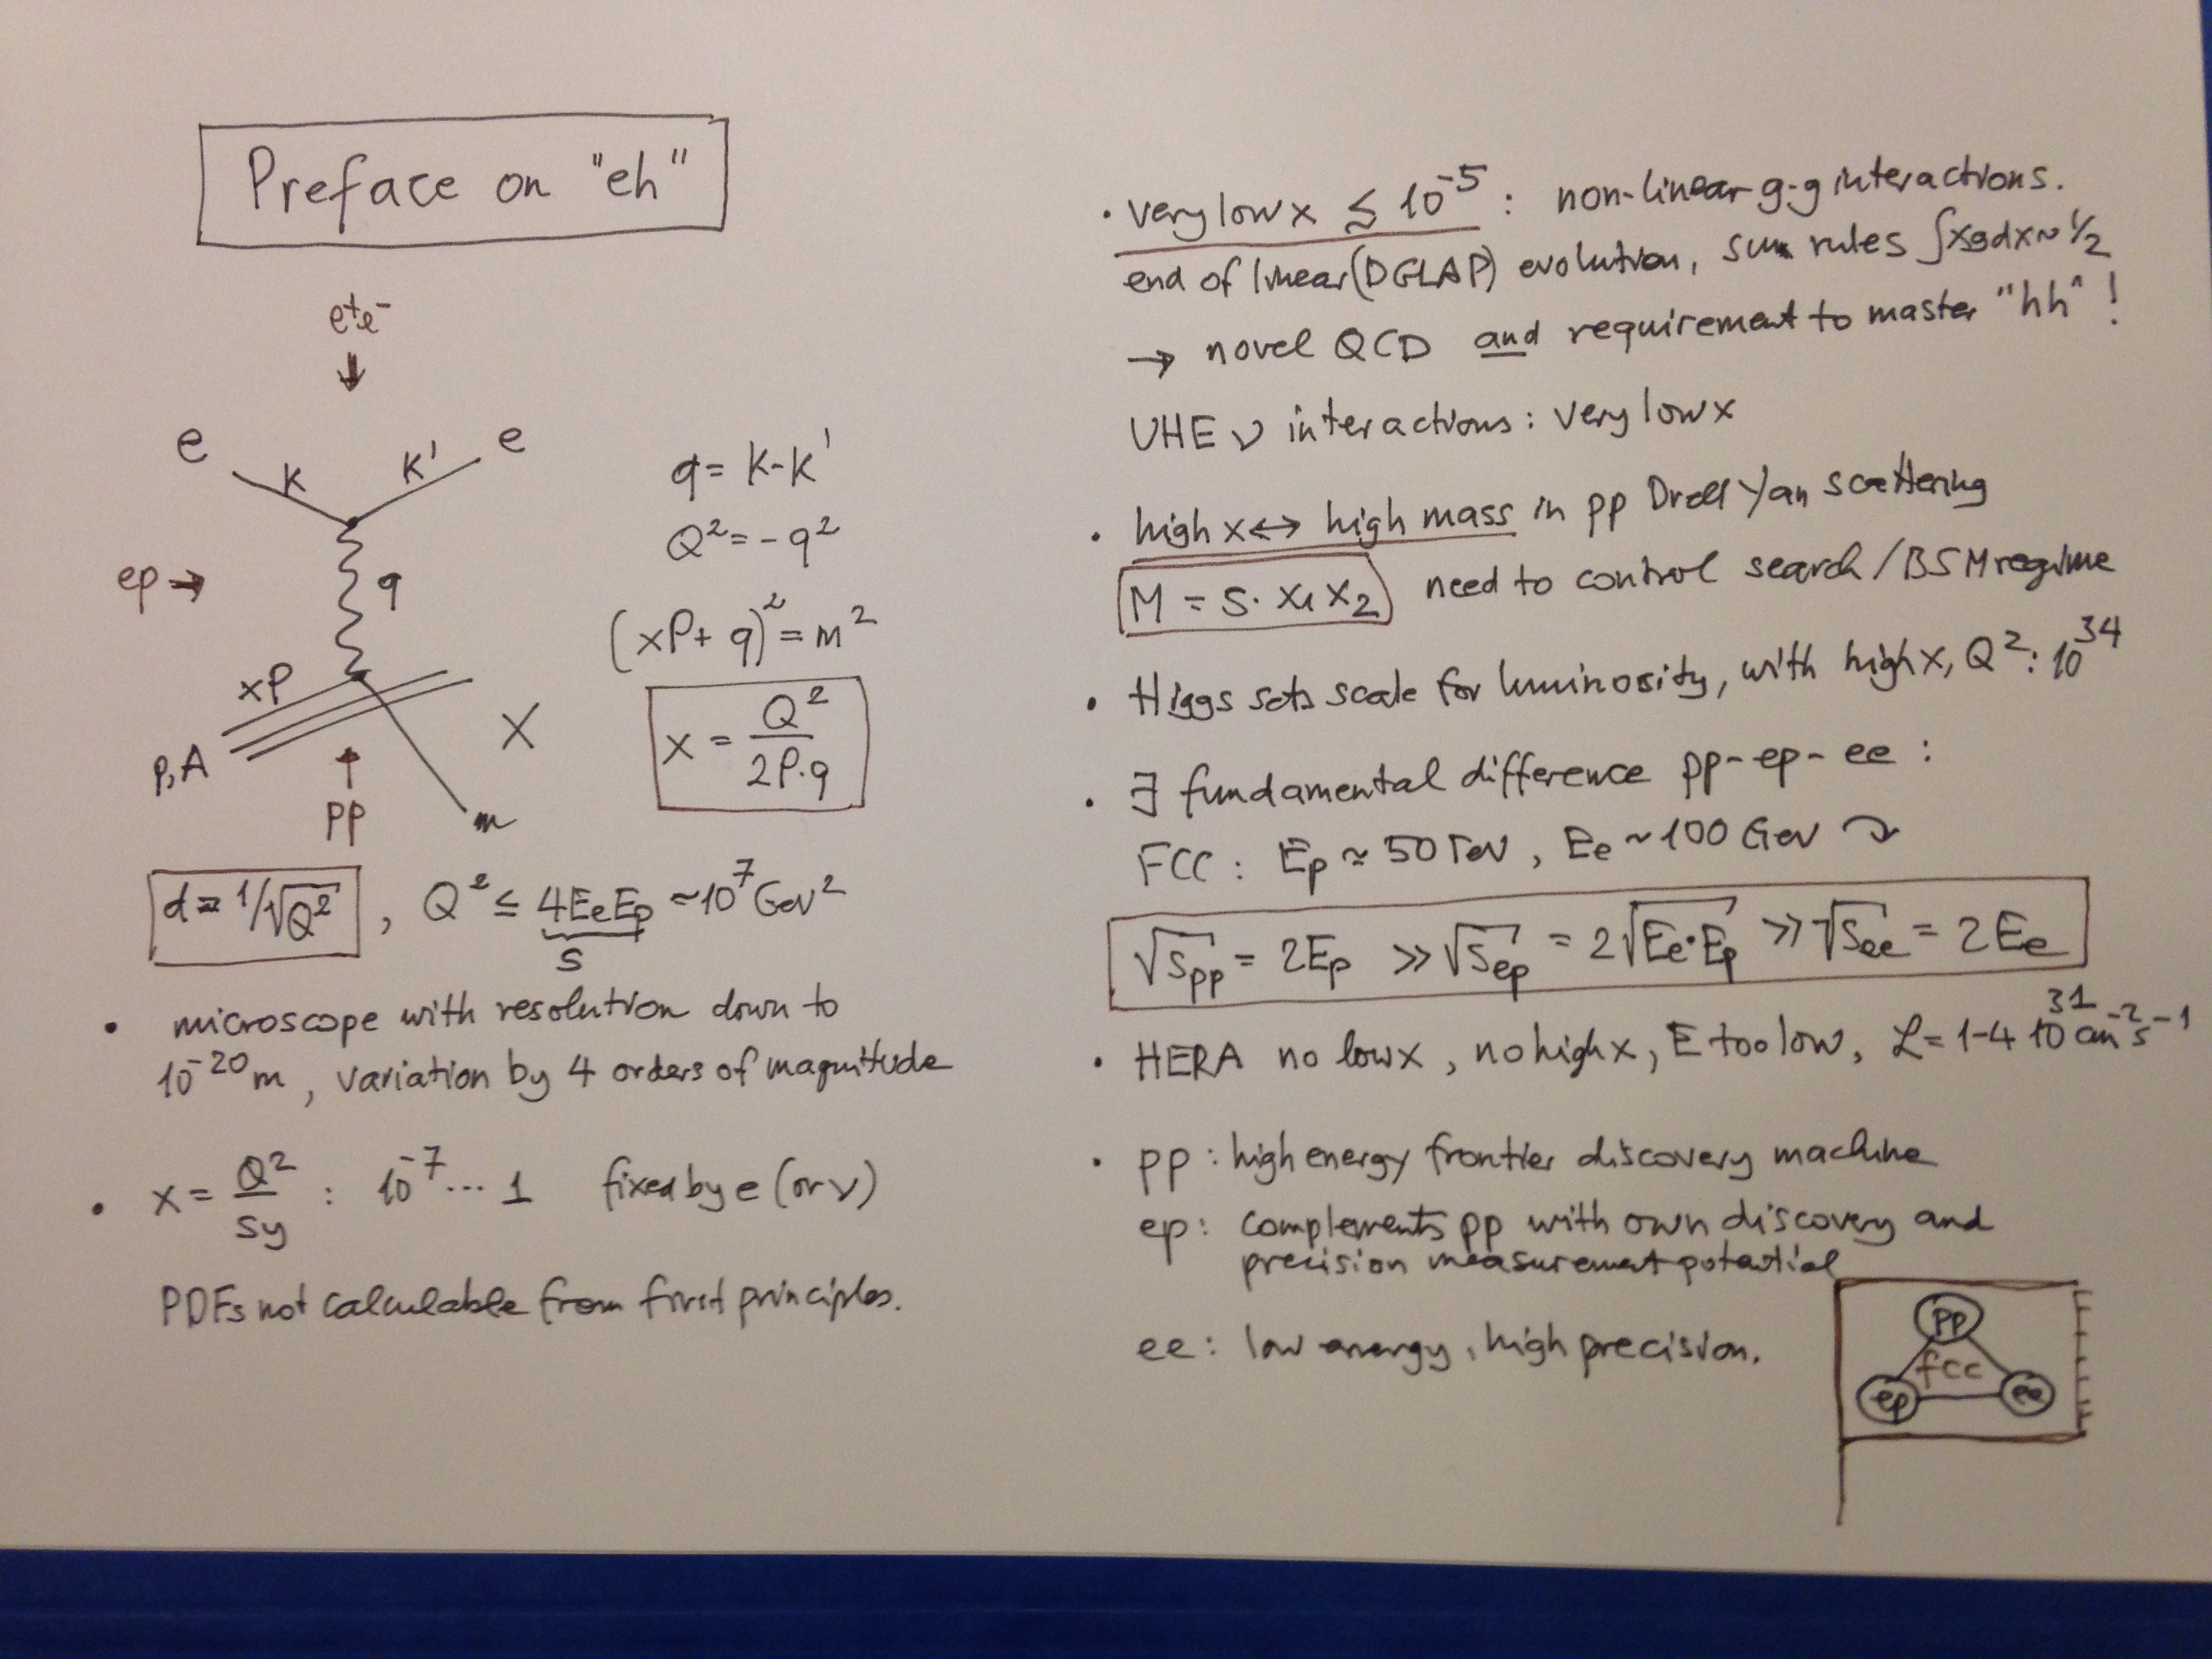 Preface on "eh"
e+e-
↓
e k k' e
q = k-k'
Q² = -q²
ep → q
(xP + q)² = m²
xP
p, A
X
x = Q² / 2P·q
↑
pp
m
d = 1/√Q² , Q² ≤ 4EeEp ~ 10⁷ GeV²
s
• microscope with resolution down to
10⁻²⁰ m, variation by 4 orders of magnitude
• x = Q² / sy : 10⁻⁷ ... 1 fixed by e (or ν)
PDFs not calculable from first principles.
• very low x ≲ 10⁻⁵ : non-linear g-g interactions.
end of linear (DGLAP) evolution, sum rules ∫xgdx ~ 1/2
→ novel QCD and requirement to master "hh" !
UHE ν interactions : very low x
• high x ↔ high mass in pp Drell Yan scattering
M = s · x₁ x₂ need to control search / BSM regime
• Higgs sets scale for luminosity, with high x, Q² : 10³⁴
• ∃ fundamental difference pp - ep - ee :
FCC : Ep ≃ 50 TeV , Ee ~ 100 GeV ↷
√spp = 2Ep >> √sep = 2√Ee·Ep >> √see = 2Ee
• HERA no low x , no high x, E too low, ℒ = 1-4 10³¹ cm⁻² s⁻¹
• pp : high energy frontier discovery machine
ep : complements pp with own discovery and
precision measurement potential
ee : low energy, high precision.
pp
fcc
ep ee